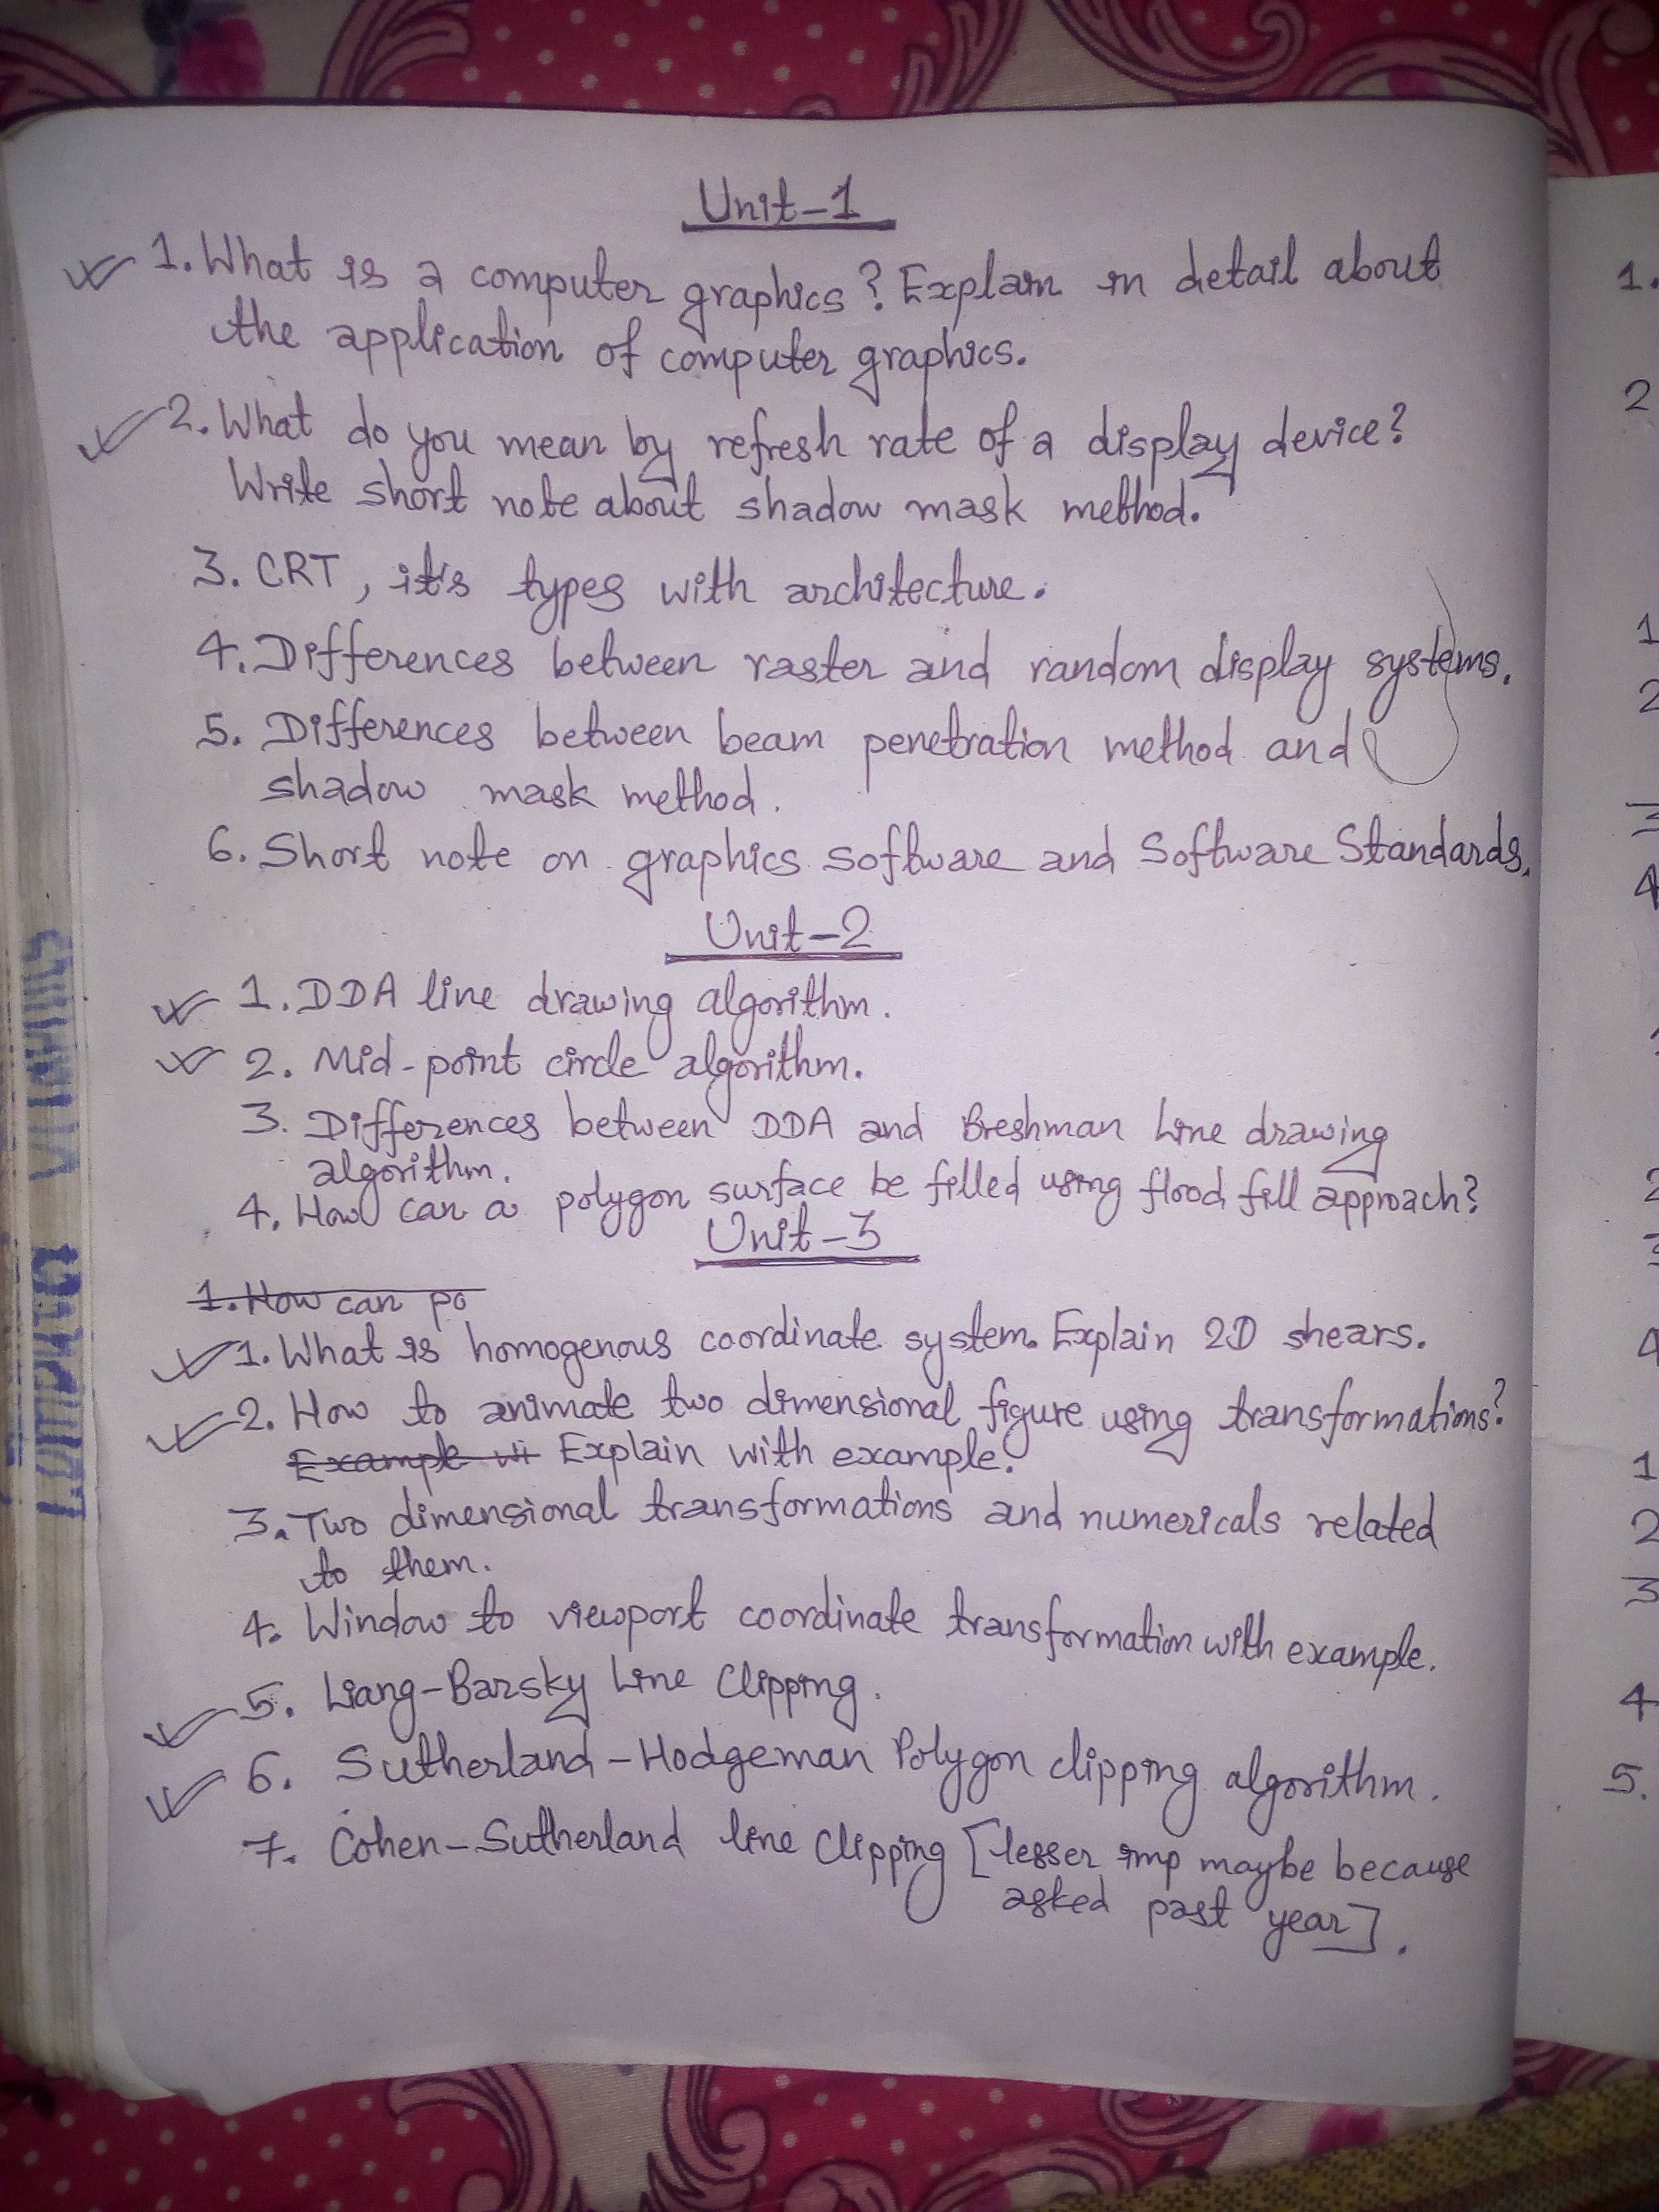 Unit-1
1. What is a computer graphics? Explain in detail about
the application of computer graphics.
2. What do you mean by refresh rate of a display device?
Write short note about shadow mask method.
3. CRT, it's types with architecture.
4. Differences between raster and random display systems.
5. Differences between beam penetration method and
shadow mask method.
6. Short note on graphics software and Software Standards.
Unit-2
1. DDA line drawing algorithm.
2. Mid-point circle algorithm.
3. Differences between DDA and Breshman Line drawing
algorithm.
4. How can a polygon surface be filled using flood fill approach?
Unit-3
1. How can po
1. What is homogenous coordinate system. Explain 2D shears.
2. How to animate two dimensional figure using transformations?
Example wi Explain with example.
3. Two dimensional transformations and numericals related
to them.
4. Window to viewport coordinate transformation with example.
5. Liang-Barsky Line Clipping.
6. Sutherland-Hodgeman Polygon clipping algorithm.
7. Cohen-Sutherland line Clipping [lesser imp maybe because
asked past year].
1.
2
1
2
3
4
2
3
4
1
2
3
4
5.